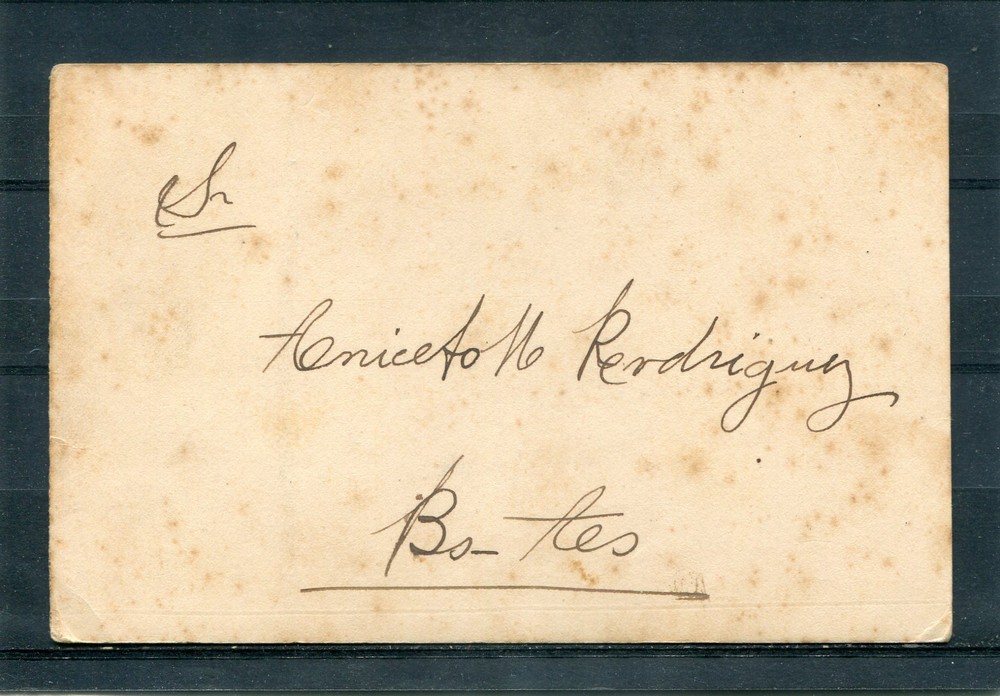 Sr
Aniceto M Rodriguez
Bs - Aes